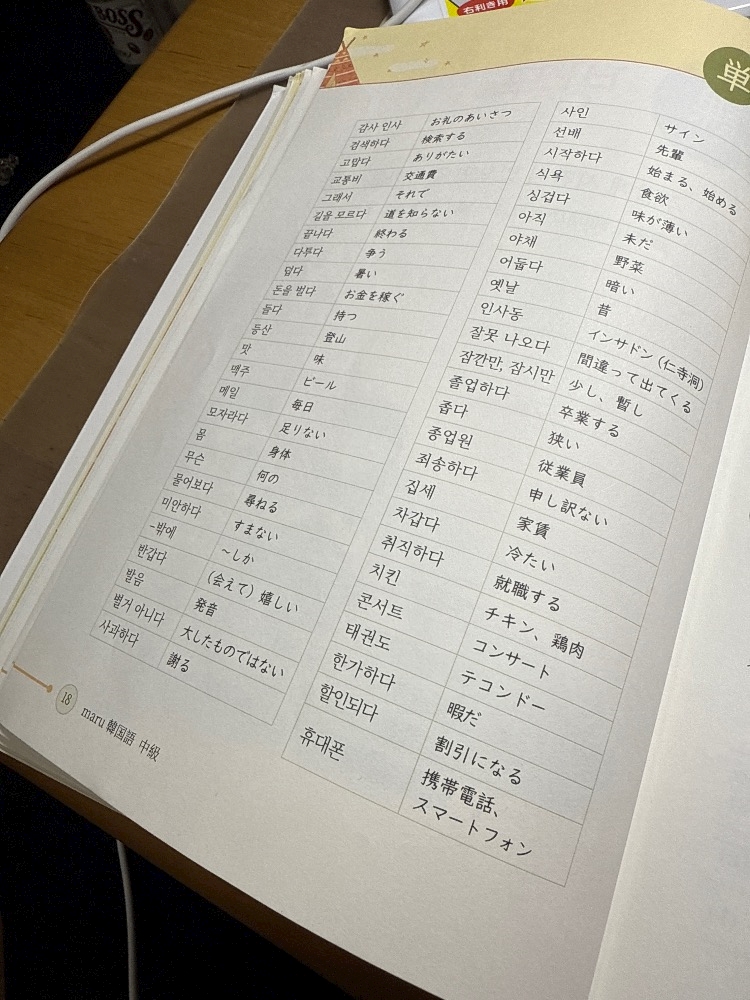 BOSS
右利き用
単
감사 인사 お礼のあいさつ
검색하다 検索する
고맙다 ありがたい
교통비 交通費
그래서 それで
길을 모르다 道を知らない
끝나다 終わる
다투다 争う
덥다 暑い
돈을 벌다 お金を稼ぐ
들다 持つ
등산 登山
맛 味
맥주 ビール
매일 毎日
모자라다 足りない
몸 身体
무슨 何の
물어보다 尋ねる
미안하다 すまない
-밖에 ~しか
반갑다 (会えて)嬉しい
발음 発音
별거 아니다 大したものではない
사과하다 謝る
사인 サイン
선배 先輩
시작하다 始まる、始める
식욕 食欲
싱겁다 味が薄い
아직 未だ
야채 野菜
어둡다 暗い
옛날 昔
인사동 インサドン(仁寺洞)
잘못 나오다 間違って出てくる
잠깐만, 잠시만 少し、暫し
졸업하다 卒業する
좁다 狭い
종업원 従業員
죄송하다 申し訳ない
집세 家賃
차갑다 冷たい
취직하다 就職する
치킨 チキン、鶏肉
콘서트 コンサート
태권도 テコンドー
한가하다 暇だ
할인되다 割引になる
휴대폰 携帯電話、
スマートフォン
18 maru 韓国語 中級